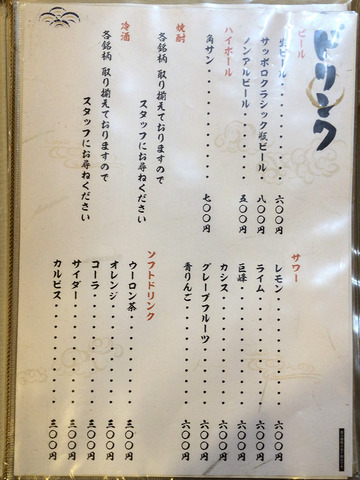 ドリンク
ビール
生ビール・・・・・・・・六〇〇円
サッポロクラシック瓶ビール・・八〇〇円
ノンアルビール・・・・・・五〇〇円
ハイボール
角サン・・・・・・・・・七〇〇円
焼酎
各銘柄 取り揃えておりますので
スタッフにお尋ねください
冷酒
各銘柄 取り揃えておりますので
スタッフにお尋ねください
サワー
レモン・・・・・・・・・六〇〇円
ライム・・・・・・・・・六〇〇円
巨峰・・・・・・・・・・六〇〇円
カシス・・・・・・・・・六〇〇円
グレープフルーツ・・・・・六〇〇円
青りんご・・・・・・・・六〇〇円
ソフトドリンク
ウーロン茶・・・・・・・三〇〇円
オレンジ・・・・・・・・三〇〇円
コーラ・・・・・・・・・三〇〇円
サイダー・・・・・・・・三〇〇円
カルピス・・・・・・・・三〇〇円